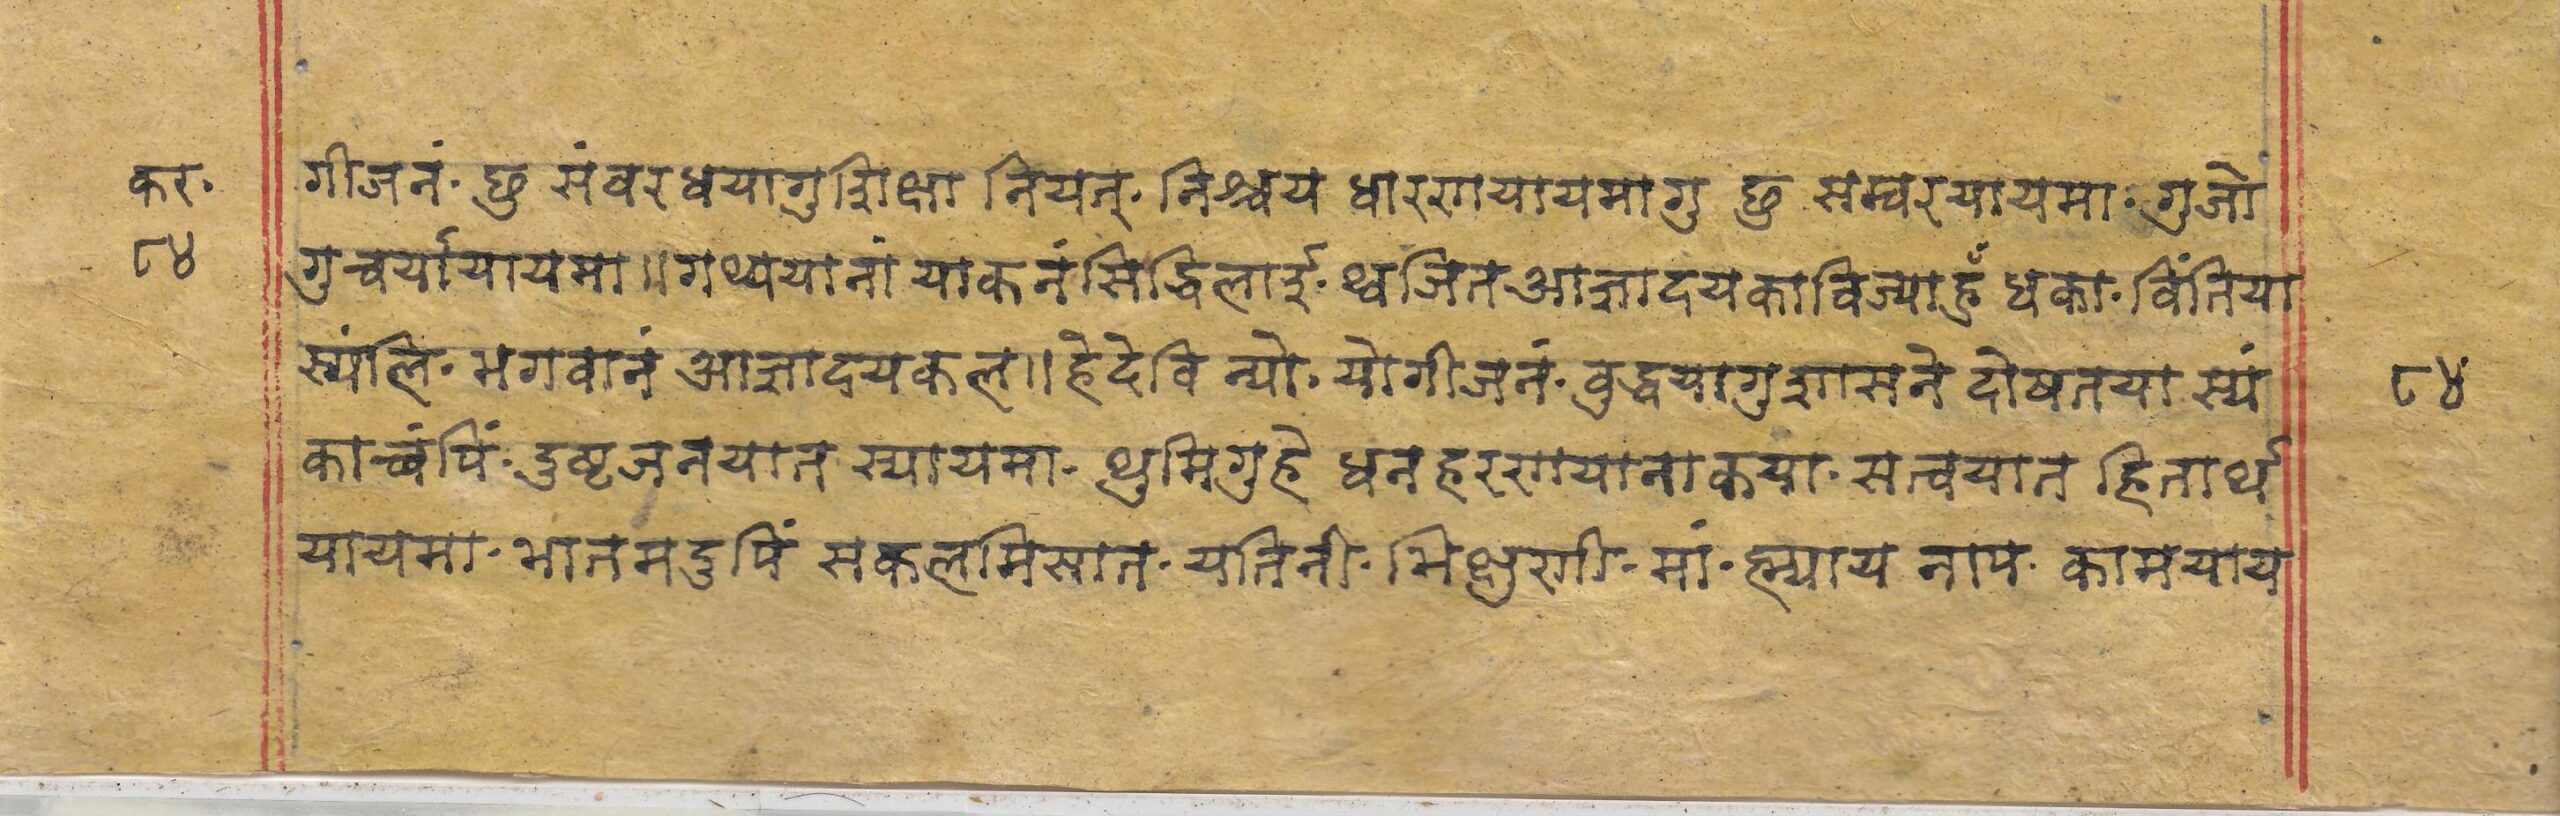 कर. गीजनं. छु संवरधयागु शिक्षा नियन्. निश्चय धारणयायमागु छु सम्वरयायमा. गुजो
८४ गुचर्यायायमा॥गथ्ययानां याकनं सिद्धिलाई. थ्वजित आज्ञादयकाविज्याहुँ धका. विंतिया
स्यंलि. भगवानं आज्ञादयकल॥हेदेवि न्यो. योगीजनं. वुद्धयागु शासने दोषतया स्यं ८४
काच्वंपिं. दुष्टजनयात स्यायमा. थुमिगुहे धनहरणयानाकया. सत्वयात हितार्थ
यायमा. भातमदुपिं सकलमिसात. यतिनी. भिक्षुणी. मां. ह्म्याय नाप. कामयाय